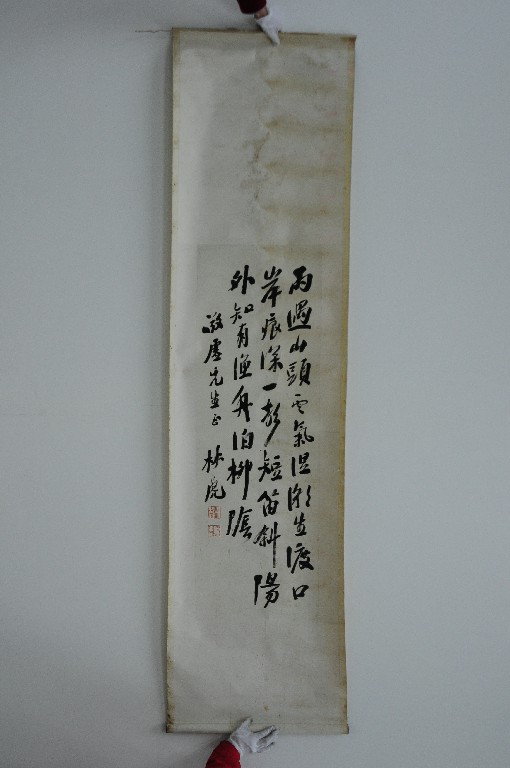 雨過山頭雲氣湿潮生渡口
岸痕深一声短笛斜陽
外知有漁舟泊柳陰
敬虚先生正 林虎